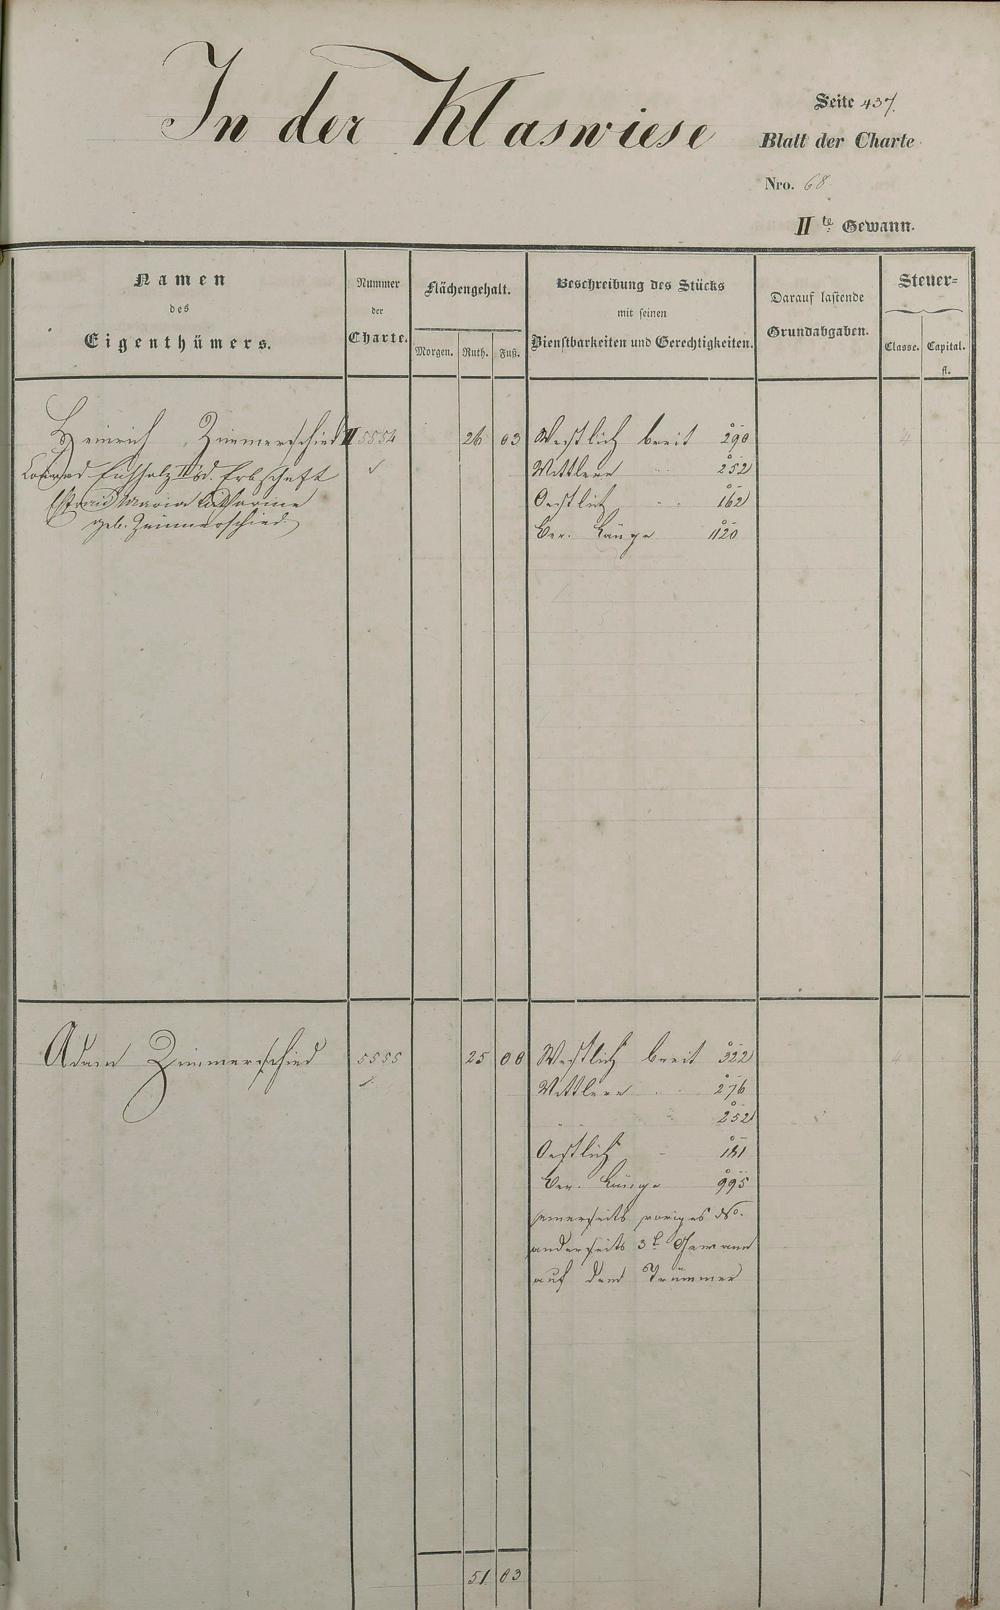 In der Klaswiese
Seite 437.
Blatt der Charte
Nro. 68
II te Gewann.
Namen
des
Eigenthümers.
Nummer
der
Charte.
Flächengehalt.
Morgen. Ruth. Fuß.
Beschreibung des Stücks
mit seinen
Dienstbarkeiten und Gerechtigkeiten.
Darauf lastende
Grundabgaben.
Steuer=
Classe. Capital.
fl.
Heinrich Zimmerschied II 5554 26 03 Westlich breit 290 4
Erbschaft
Mittlere 252
Maria Catharine
Oestlich 162
geb. Zimmerschied.
Ver. Länge 1120
Adam Zimmerschied 5555 25 00 Westlich breit 322 4
Mittlere 276
252
Oestlich 181
Ver. Länge 995
jenerseits voriges No.
anderseits 3t Gewann
auf dem Trümmer
51 03